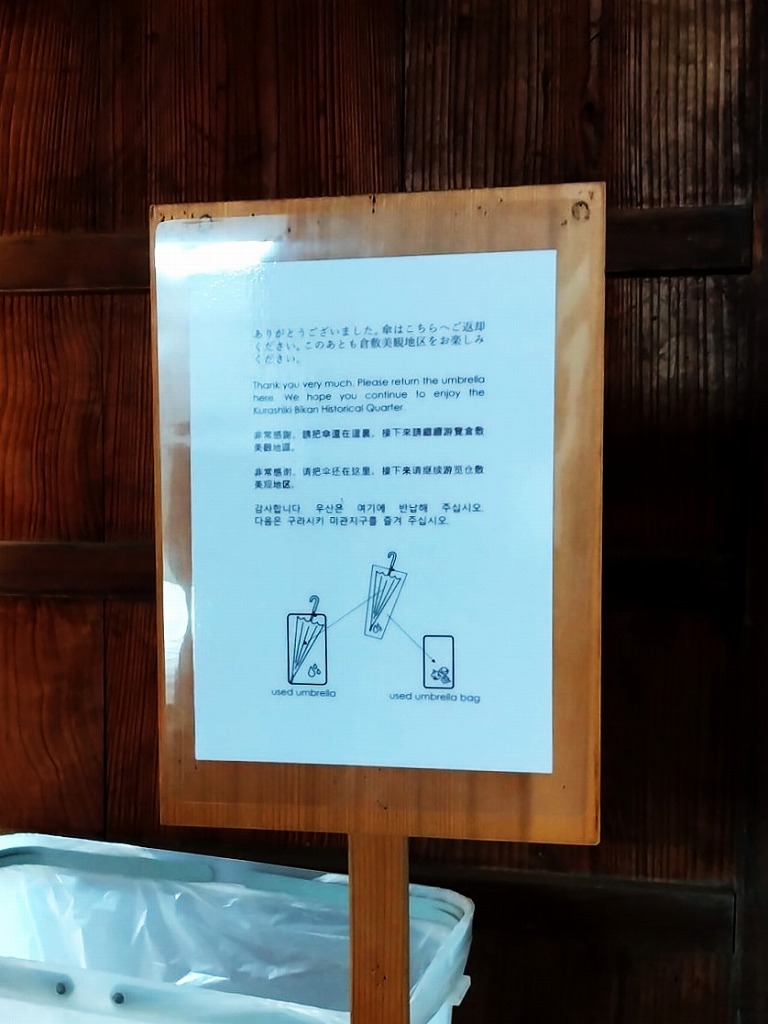 ありがとうございました。傘はこちらへご返却
ください。このあとも倉敷美観地区をお楽しみ
ください。
Thank you very much. Please return the umbrella
here. We hope you continue to enjoy the
Kurashiki Bikan Historical Quarter.
非常感謝。請把傘還在這裏。接下來請繼續游覽倉敷
美觀地區。
非常感谢。请把伞还在这里。接下来请继续游览仓敷
美观地区。
감사합니다. 우산은 여기에 반납해 주십시오.
다음은 구라시키 미관지구를 즐겨 주십시오.
used umbrella
used umbrella bag